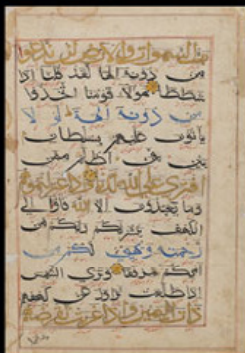 السموات والارض لن ندعوا
من دونه الها لقد قلنا اذا
شططا هولا قومنا اتخذوا
من دونه الهة لو لا
ياتون عليهم بسلطان
بين فمن اظلم ممن
افترى على الله كذبا واذ اعتزلتموهم
وما يعبدون الا الله فاوا الى
الكهف ينشر لكم ربكم من
رحمته ويهيئ لكم من
امركم مرفقا وترى الشمس
اذا طلعت تزاور عن كهفهم
ذات اليمين واذا غربت تقرضهم